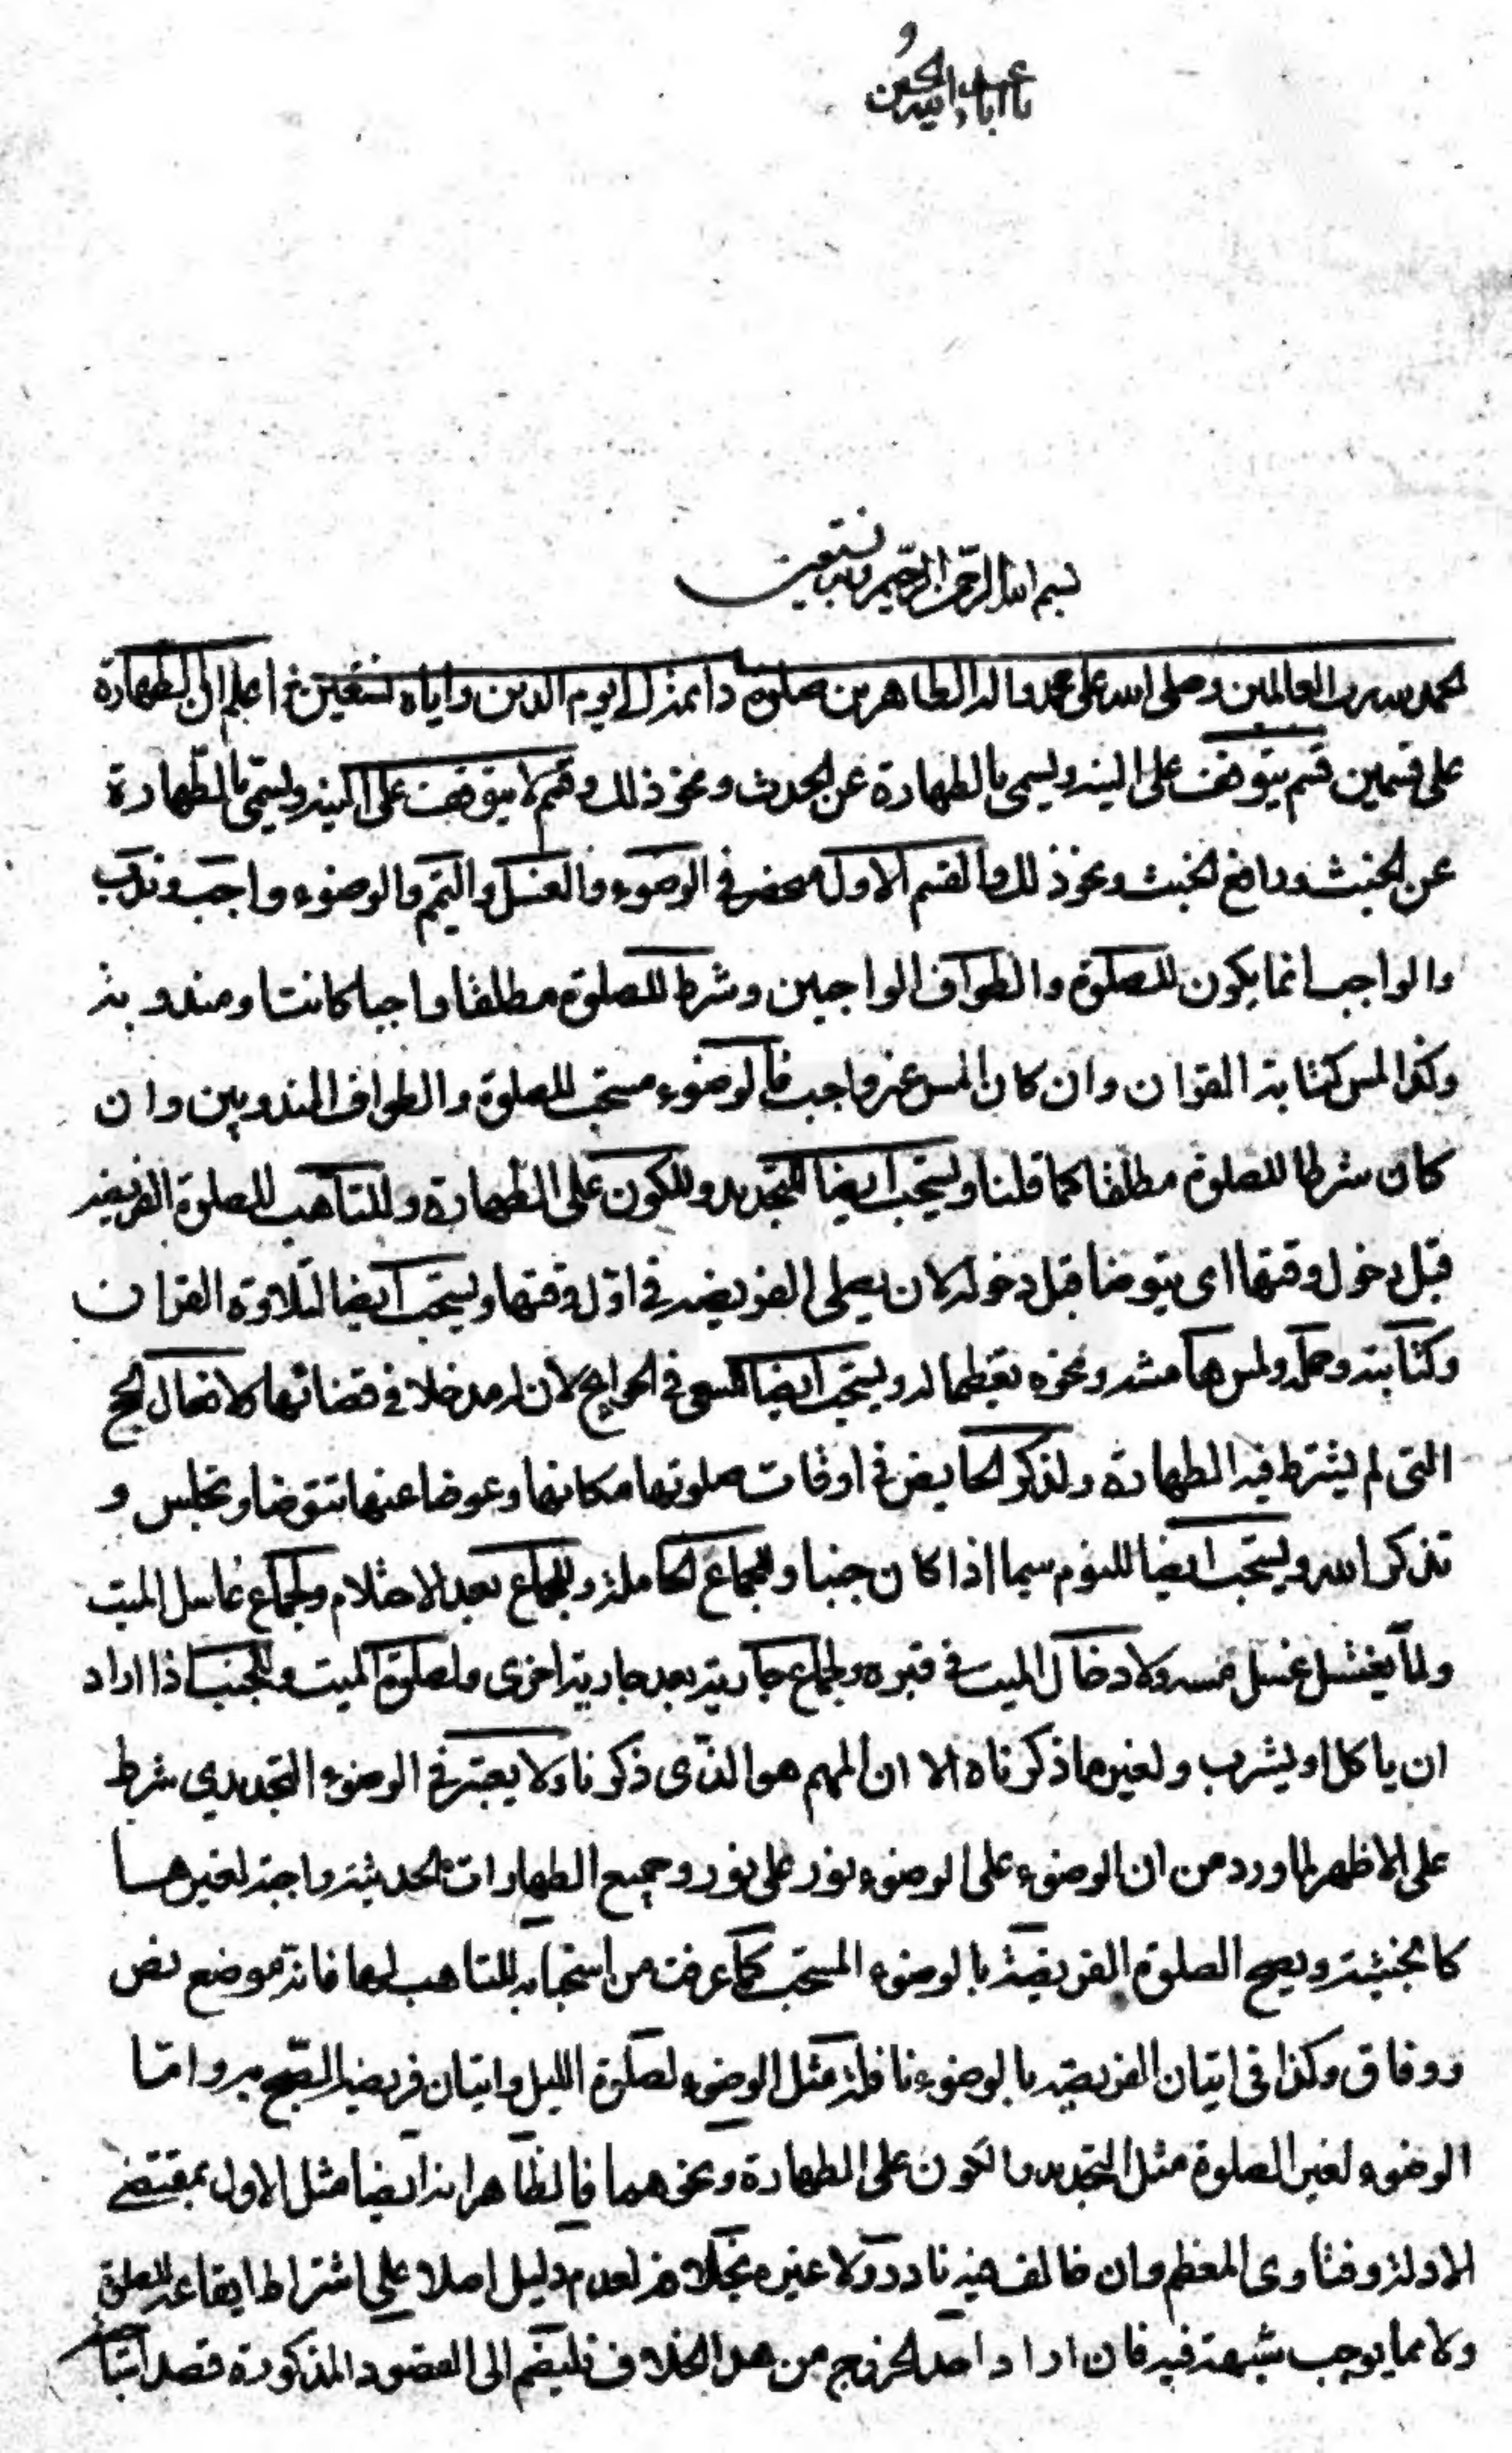 يا ابا عبد الله الحسين
بسم الله الرحمن الرحيم وبه نستعين
الحمد لله رب العالمين وصلى الله على محمد واله الطاهرين صلوة دائمة الى يوم الدين واياه نستعين اعلم ان الطهارة
على قسمين قسم يتوقف على النية ويسمى بالطهارة عن الحدث ونحو ذلك وقسم لا يتوقف على النية ويسمى بالطهارة
عن الخبث ودافع الخبث ونحو ذلك والقسم الاول منحصر في الوضوء والغسل والتيمم والوضوء واجب وندب
والواجب انما يكون للصلوة والطواف الواجبين وشرط للصلوة مطلقا واجبا كانت او مندوبة
وكذا لمس كتابة القران وان كان المس غير واجب فالوضوء مستحب للصلوة والطواف المندوبين وان
كان شرطا للصلوة مطلقا كما قلنا ويستحب ايضا للتجديد وللكون على الطهارة وللتاهب للصلوة الفريضة
قبل دخول وقتها اى يتوضا قبل دخوله لان يصلى الفريضة في اول وقتها ويستحب ايضا لتلاوة القران
وكتابته وحمله ولمس هامشه ونحوه تعظيما له ويستحب ايضا للسعى في الحوايج لان له مدخلا في قضائها كافعال الحج
التى لم يشترط فيه الطهارة ولذكر الحايض في اوقات صلوتها مكانها وعوضا عنها تتوضا وتجلس و
تذكر الله ويستحب ايضا للنوم سيما اذا كان جنبا ولجماع الحاملة وللجماع بعد الاحتلام ولجماع غاسل الميت
ولما يغتسل غسل مسه ولادخال الميت في قبره ولجماع جارية بعد جارية اخرى ولصلوة الميت وللجنب اذا اراد
ان ياكل او يشرب ولغير ما ذكرناه الا ان المهم هو الذى ذكرنا ولا يعتبر في الوضوء التجديدى شرط
على الاظهر لما ورد من ان الوضوء على الوضوء نور على نور وجميع الطهارات الحدثية واجبة لغيرها
كالخبثية ويصح الصلوة الفريضة بالوضوء المستحب كما عرفت من استحبابه للتاهب لها فانه موضع نص
ووفاق وكذا في اتيان الفريضة بالوضوء نافلة مثل الوضوء لصلوة الليل واتيان فريضة الصبح به واما
الوضوء لغير الصلوة مثل التجديد والكون على الطهارة ونحوهما فالظاهر انه ايضا مثل الاول بمقتضى
الادلة وفتاوى المعظم وان خالف فيه نادر ولا عبرة بخلافه لعدم دليل اصلا على اشتراط ايقاعه للصلوة
ولا مما يوجب شبهة فيه فان اراد احد الخروج من هذا الخلاف فليضم الى القصود المذكورة قصد